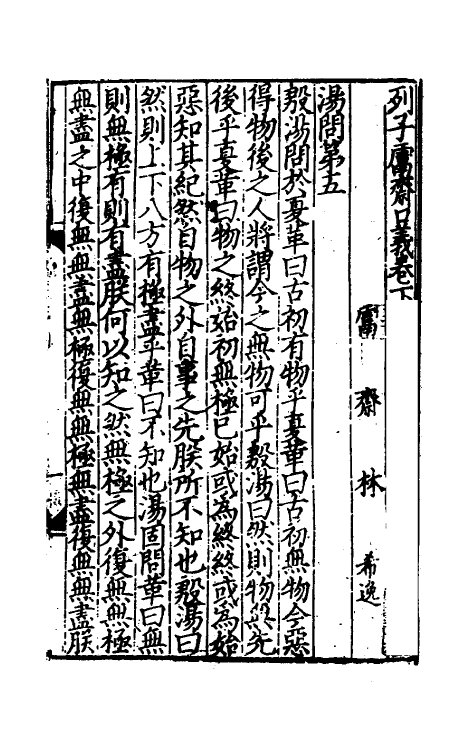 列子鬳齋口義卷下
鬳齋林 希逸
湯問第五
殷湯問於夏革曰古初有物乎夏革曰古初無物今惡
得物後之人將謂今之無物可乎殷湯曰然則物無先
後乎夏革曰物之終始初無極已始或為終終或為始
惡知其紀然自物之外自事之先朕所不知也殷湯曰
然則上下八方有極盡乎革曰不知也湯固問革曰無
則無極有則有盡朕何以知之然無極之外復無無極
無盡之中復無無盡無極復無無極無盡復無無盡朕